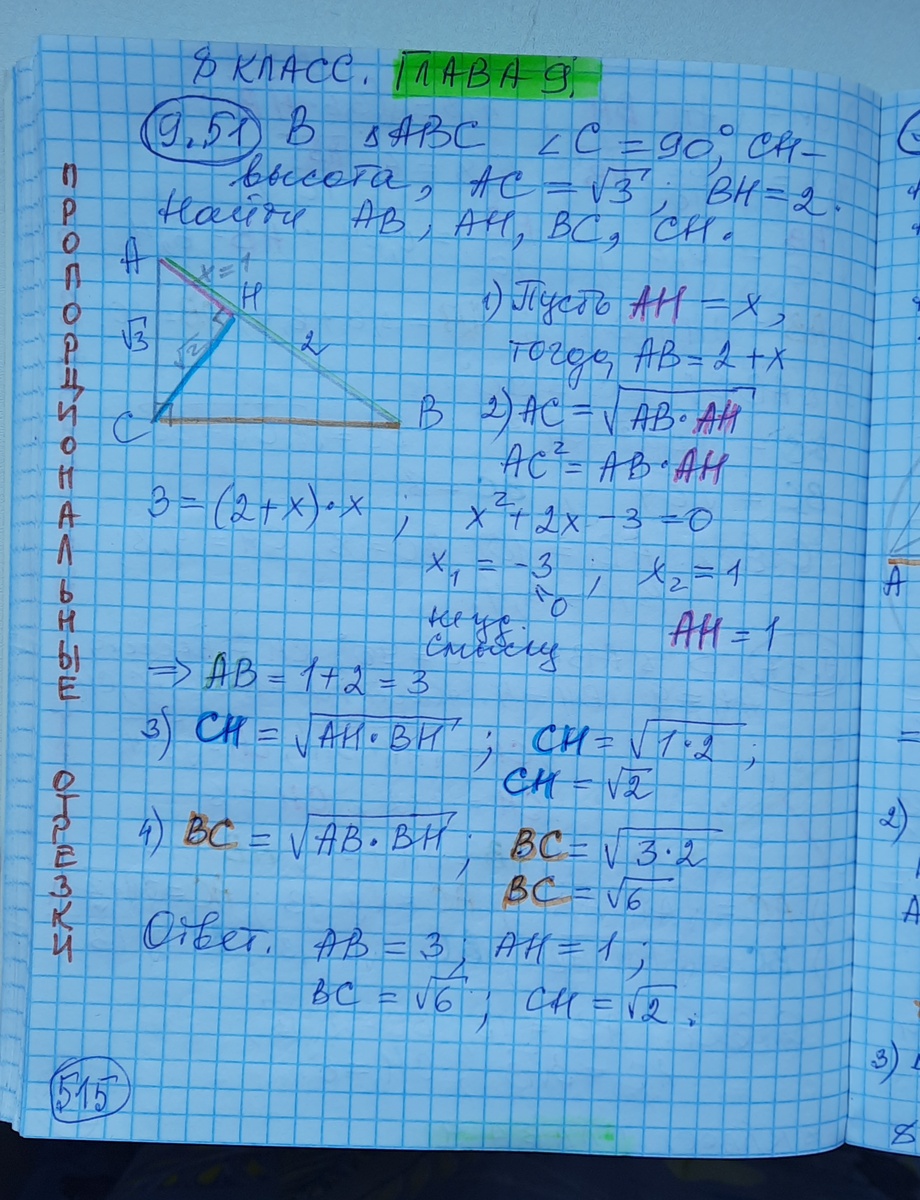 8 КЛАСС. ГЛАВА 9.
9.51 В ΔABC ∠C = 90°, CH –
высота, AC = √3; BH = 2.
Найти AB, AH, BC, CH.
ПРОПОРЦИОНАЛЬНЫЕ ОТРЕЗКИ
A
x = 1
H
√3
√2
2
C
B
1) Пусть AH = x,
тогда AB = 2 + x
2) AC = √AB · AH
AC² = AB · AH
3 = (2 + x) · x ; x² + 2x – 3 = 0
x₁ = -3 ; x₂ = 1
не уд.
смыслу
AH = 1
⇒ AB = 1 + 2 = 3
3) CH = √AH · BH ; CH = √1 · 2 ;
CH = √2
4) BC = √AB · BH ; BC = √3 · 2
BC = √6
Ответ. AB = 3; AH = 1 ;
BC = √6 ; CH = √2 .
515
A
=
2)
A
3)
8